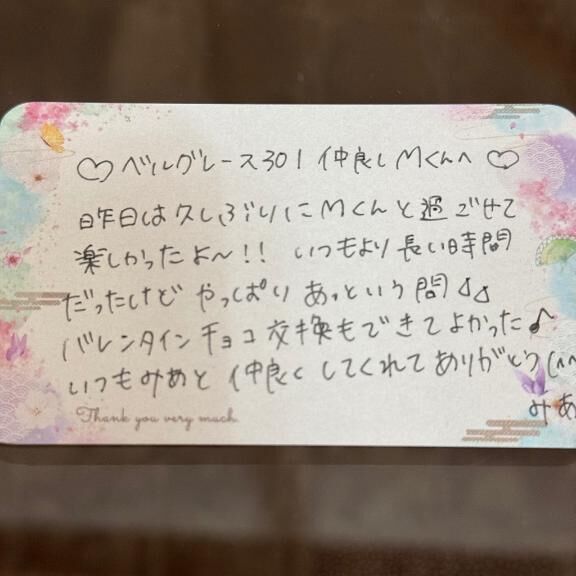 ♡ベルグレース301 仲良しMくんへ♡
昨日は久しぶりにMくんと過ごせて
楽しかったよ〜!! いつもより長い時間
だったけど やっぱり あっという間
バレンタインチョコ交換もできてよかった♪
いつもみあと 仲良く してくれて ありがとう(^^
みあ
Thank you very much